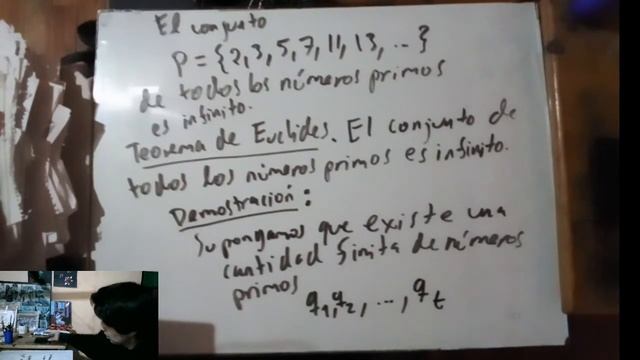 El conjunto
P = {2, 3, 5, 7, 11, 13, ...}
de todos los números primos
es infinito.
Teorema de Euclides. El conjunto de
todos los números primos es infinito.
Demostración:
Supongamos que existe una
cantidad finita de números
primos
q₁, q₂, ..., q_t